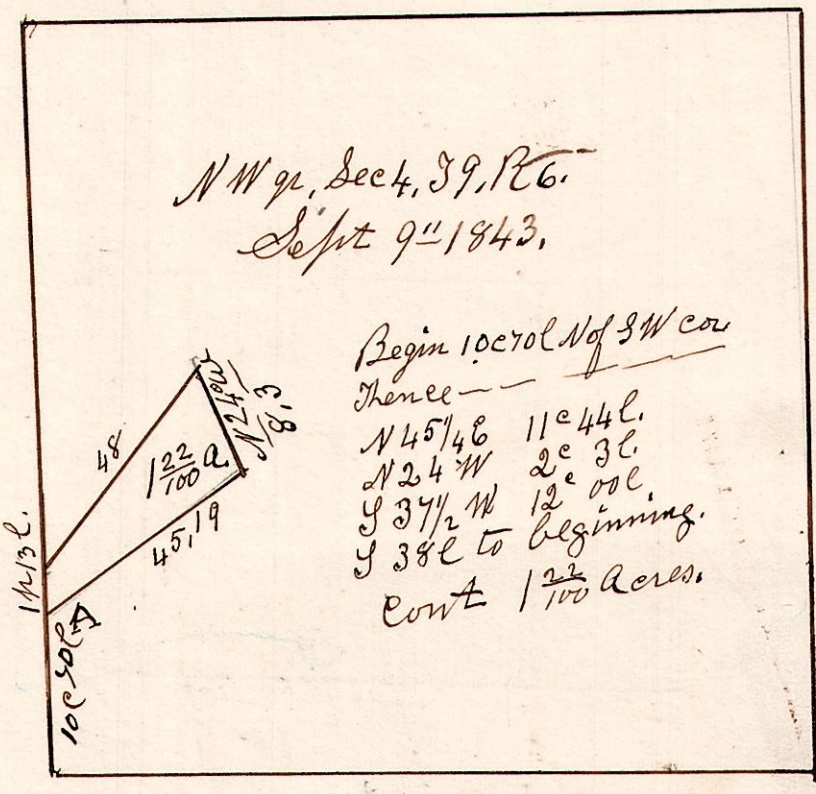 N W qr, Sec 4, T9, R6.
Sept 9" 1843.
Begin 10c70l N of S W cor
Thence
N 45 1/4 E 11c 44l.
N 24 W 2c 3l.
S 37 1/2 W 12c 00l
S 38l to beginning.
Cont 1 22/100 Acres.
N 24 W
8,3
48
1 22/100 a.
45,19
1p13l.
10c70l
A